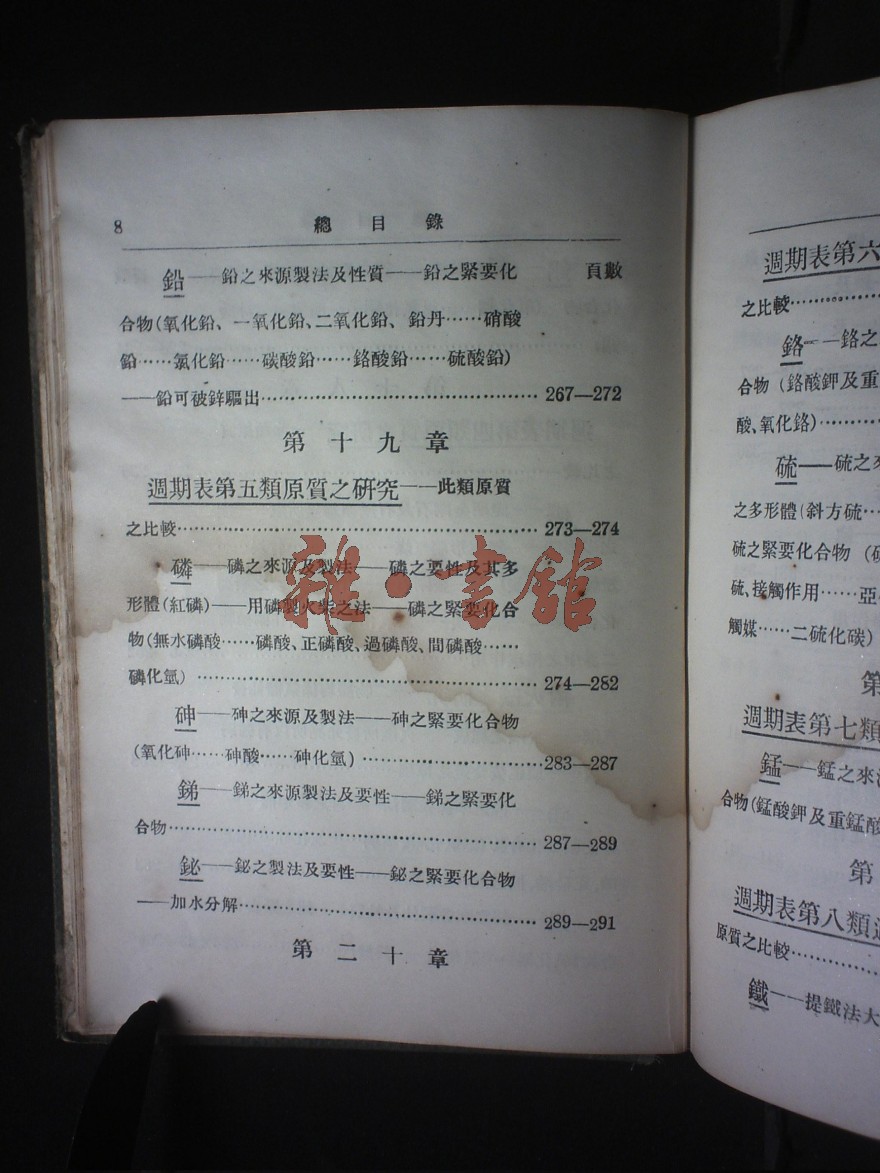 8 總目錄
鉛——鉛之來源製法及性質——鉛之緊要化 頁數
合物(氧化鉛、一氧化鉛、二氧化鉛、鉛丹……硝酸
鉛……氯化鉛……碳酸鉛……鉻酸鉛……硫酸鉛)
——鉛可被鋅驅出…………267—272
第十九章
週期表第五類原質之研究——此類原質
之比較…………273—274
磷——磷之來源及製法——磷之要性及其多
形體(紅磷)——用磷製火柴之法——磷之緊要化合
物(無水磷酸……磷酸、正磷酸、過磷酸、間磷酸……
磷化氫)…………274—282
砷——砷之來源及製法——砷之緊要化合物
(氧化砷……砷酸……砷化氫)…………283—287
銻——銻之來源製法及要性——銻之緊要化
合物…………287—289
鉍——鉍之製法及要性——鉍之緊要化合物
——加水分解…………289—291
第二十章
雜·書館
週期表第六
之比較…………
鉻——鉻之
合物(鉻酸鉀及重
酸、氧化鉻)…………
硫——硫之
之多形體(斜方硫…
硫之緊要化合物(
硫、接觸作用……亞
觸媒……二硫化碳)
第
週期表第七類
錳——錳之來
合物(錳酸鉀及重錳酸
第
週期表第八類
原質之比較…………
鐵——提鐵法大